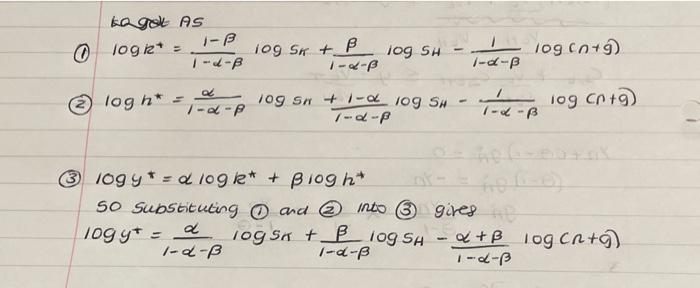 AS
① log k* = (1-β)/(1-α-β) log SK + β/(1-α-β) log SH - 1/(1-α-β) log (n+g)
② log h* = α/(1-α-β) log SK + (1-α)/(1-α-β) log SH - 1/(1-α-β) log (n+g)
③ log y* = α log k* + β log h*
so substituting ① and ② into ③ gives
log y* = α/(1-α-β) log SK + β/(1-α-β) log SH - (α+β)/(1-α-β) log (n+g)